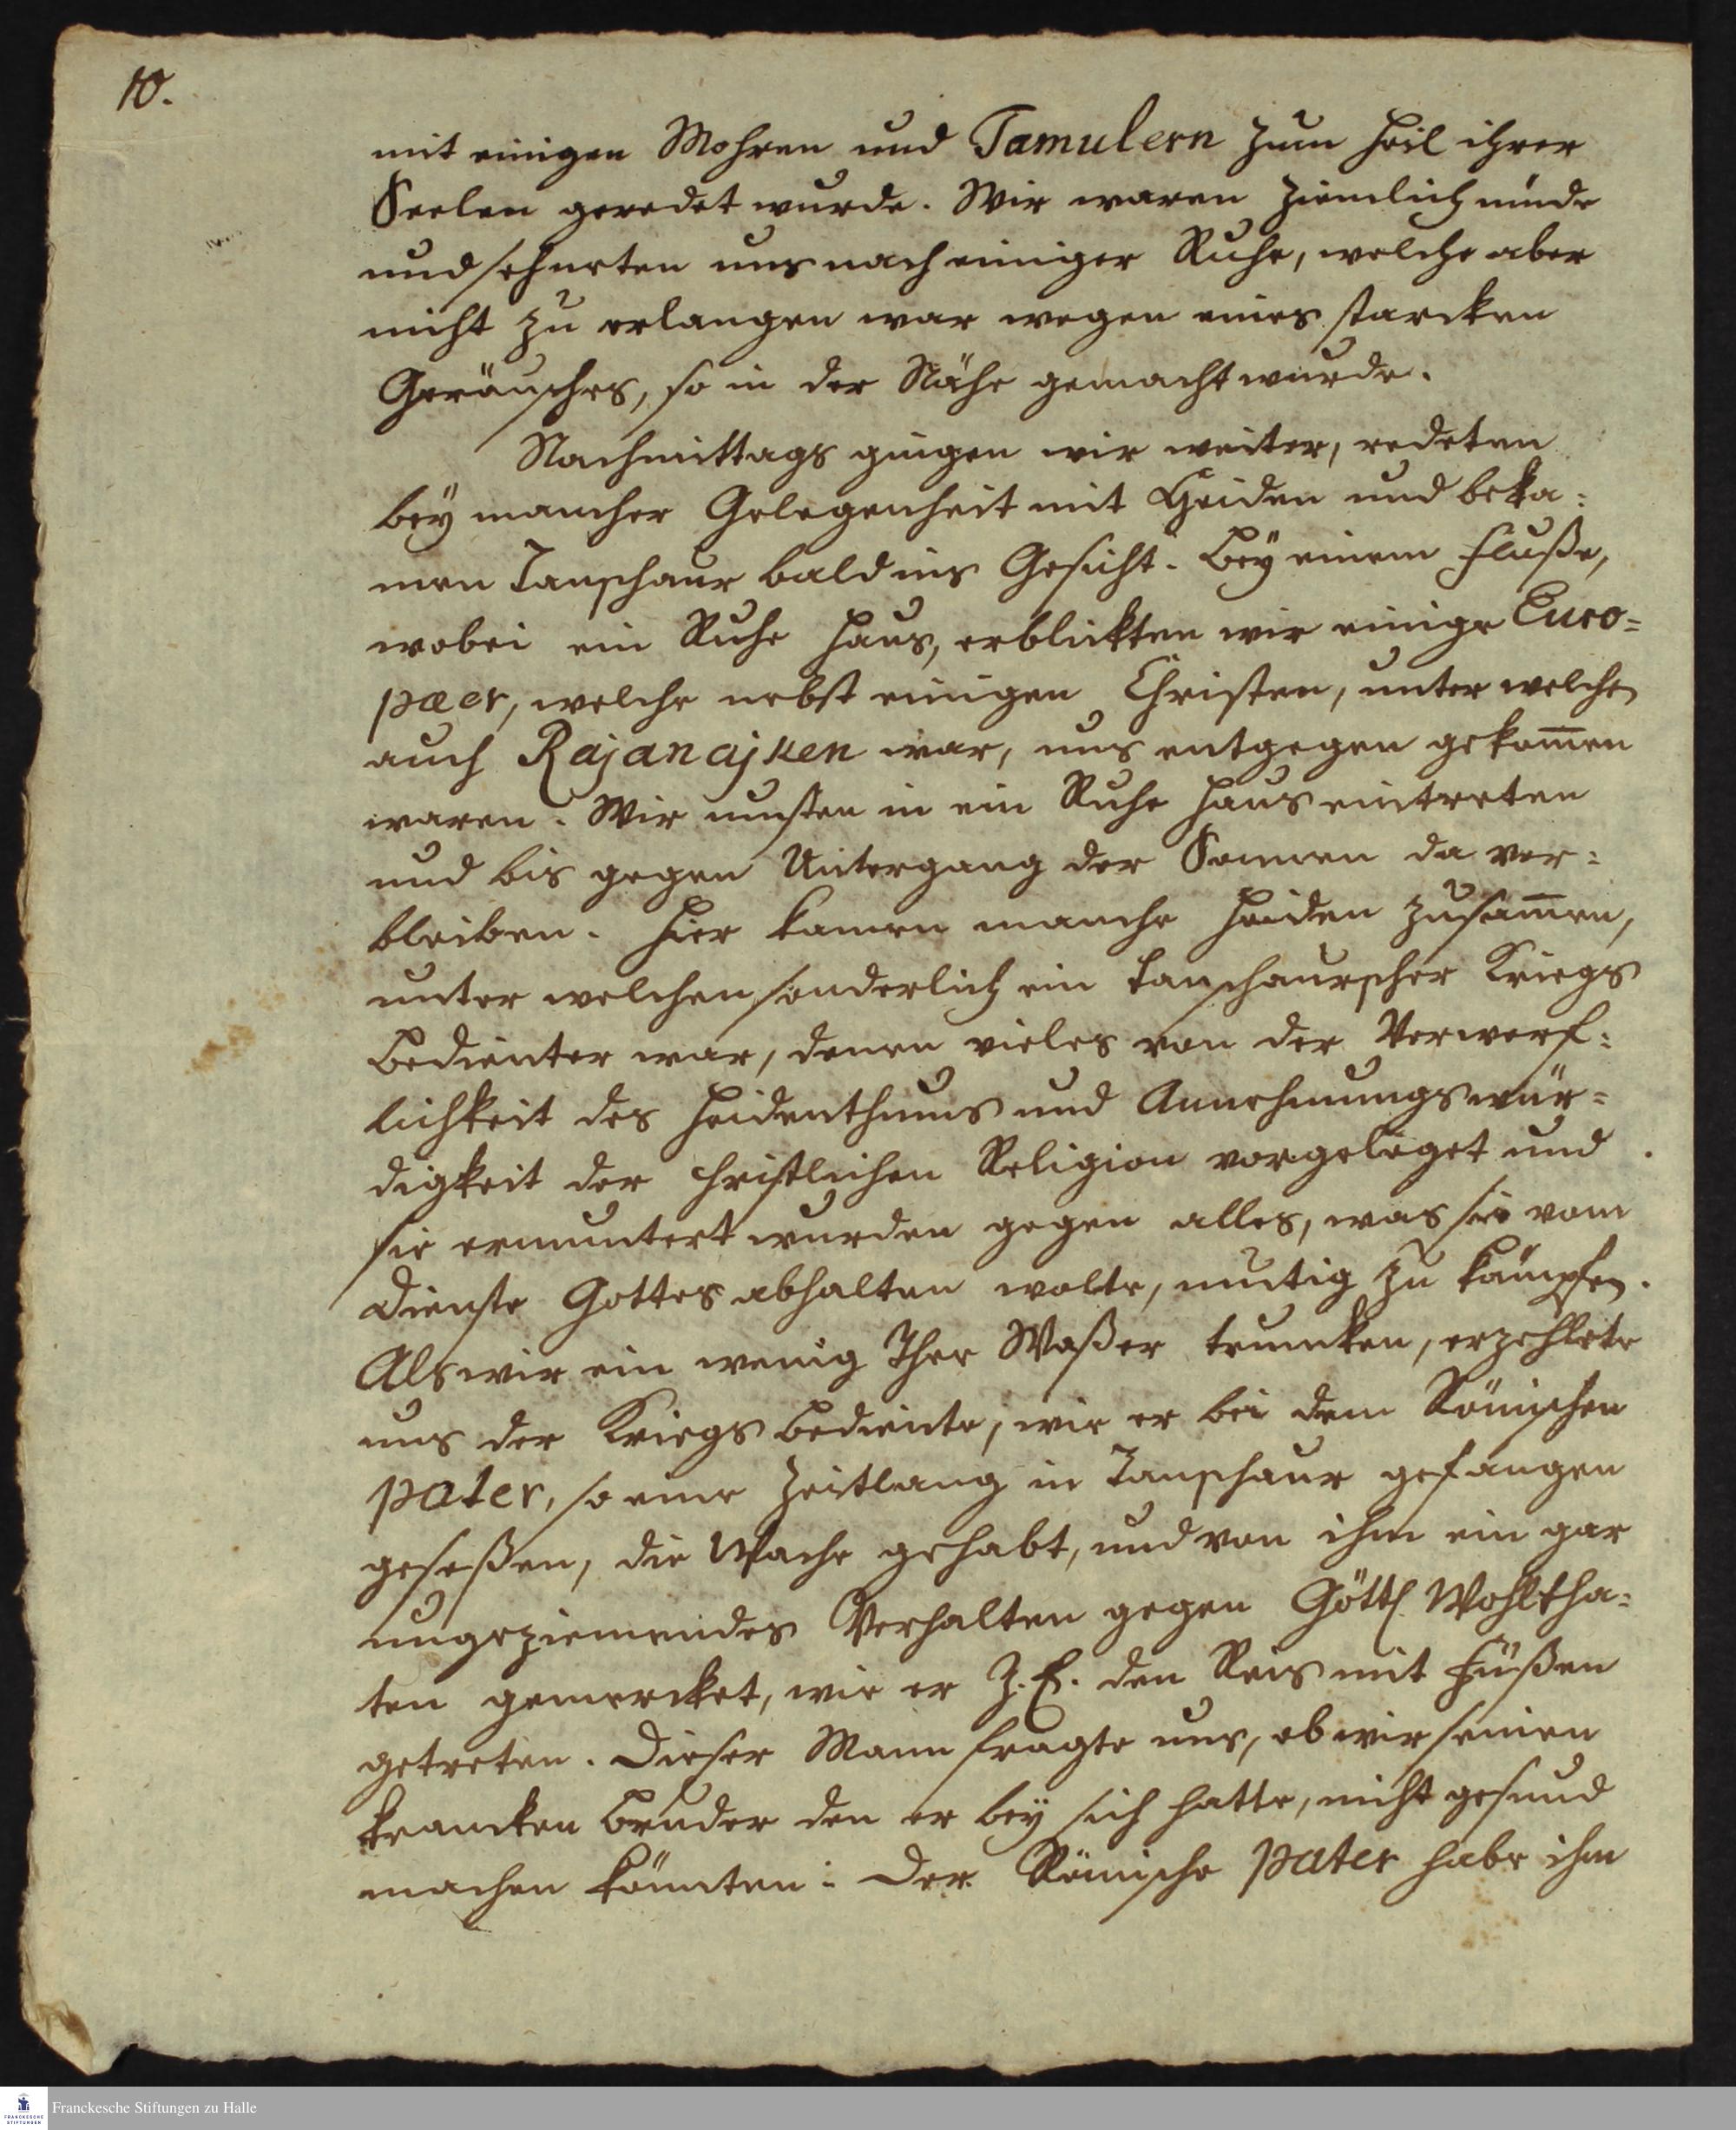 10.
mit einigen Mohren und Tamulern zum Heil ihrer
Seelen geredet wurde. Wir waren ziemlich müde
und sehneten uns nach einiger Ruhe, welche aber
nicht zu erlangen war wegen eines starcken
Geräusches, so in der Nähe gemacht wurde.
Nachmittags gingen wir weiter, redeten
bey mancher Gelegenheit mit Heiden und beka=
men Tanschaur bald ins Gesicht. Bey einem Fluße,
wobei ein Ruhe Haus, erblickten wir einige Euro=
pæer, welche nebst einigen Christen, unter welchen
auch Rajanajken war, uns entgegen gekom̅en
waren. Wir musten in ein Ruhe Haus eintreten
und bis gegen Untergang der Sonnen da ver=
bleiben. Hier kamen manche Heiden zusam̅en,
unter welchen sonderlich ein Tanschaurscher Kriegs
Bedienter war, denen vieles von der Verwerf=
lichkeit des Heidenthums und Annehmungswür=
digkeit der christlichen Religion vorgeleget und
sie ermuntert wurden gegen alles, was sie vom
Dienste Gottes abhalten wolte, mutig zu kämpfen.
Als wir ein wenig Thee Waßer truncken, erzehlete
uns der Kriegs Bediente, wie er bei dem Römischen
Pater, so eine Zeitlang in Tanschaur gefangen
geseßen, die Wache gehabt, und von ihm ein gar
ungeziemendes Verhalten gegen Göttl. Wohltha=
ten gemercket, wie er Z. E. den Reis mit Füßen
getreten. Dieser Mann fragte uns, ob wir seinen
krancken Bruder den er bey sich hatte, nicht gesund
machen könnten: Der Römische Pater habe ihm
Franckesche Stiftungen zu Halle
FRANCKESCHE
STIFTUNGEN